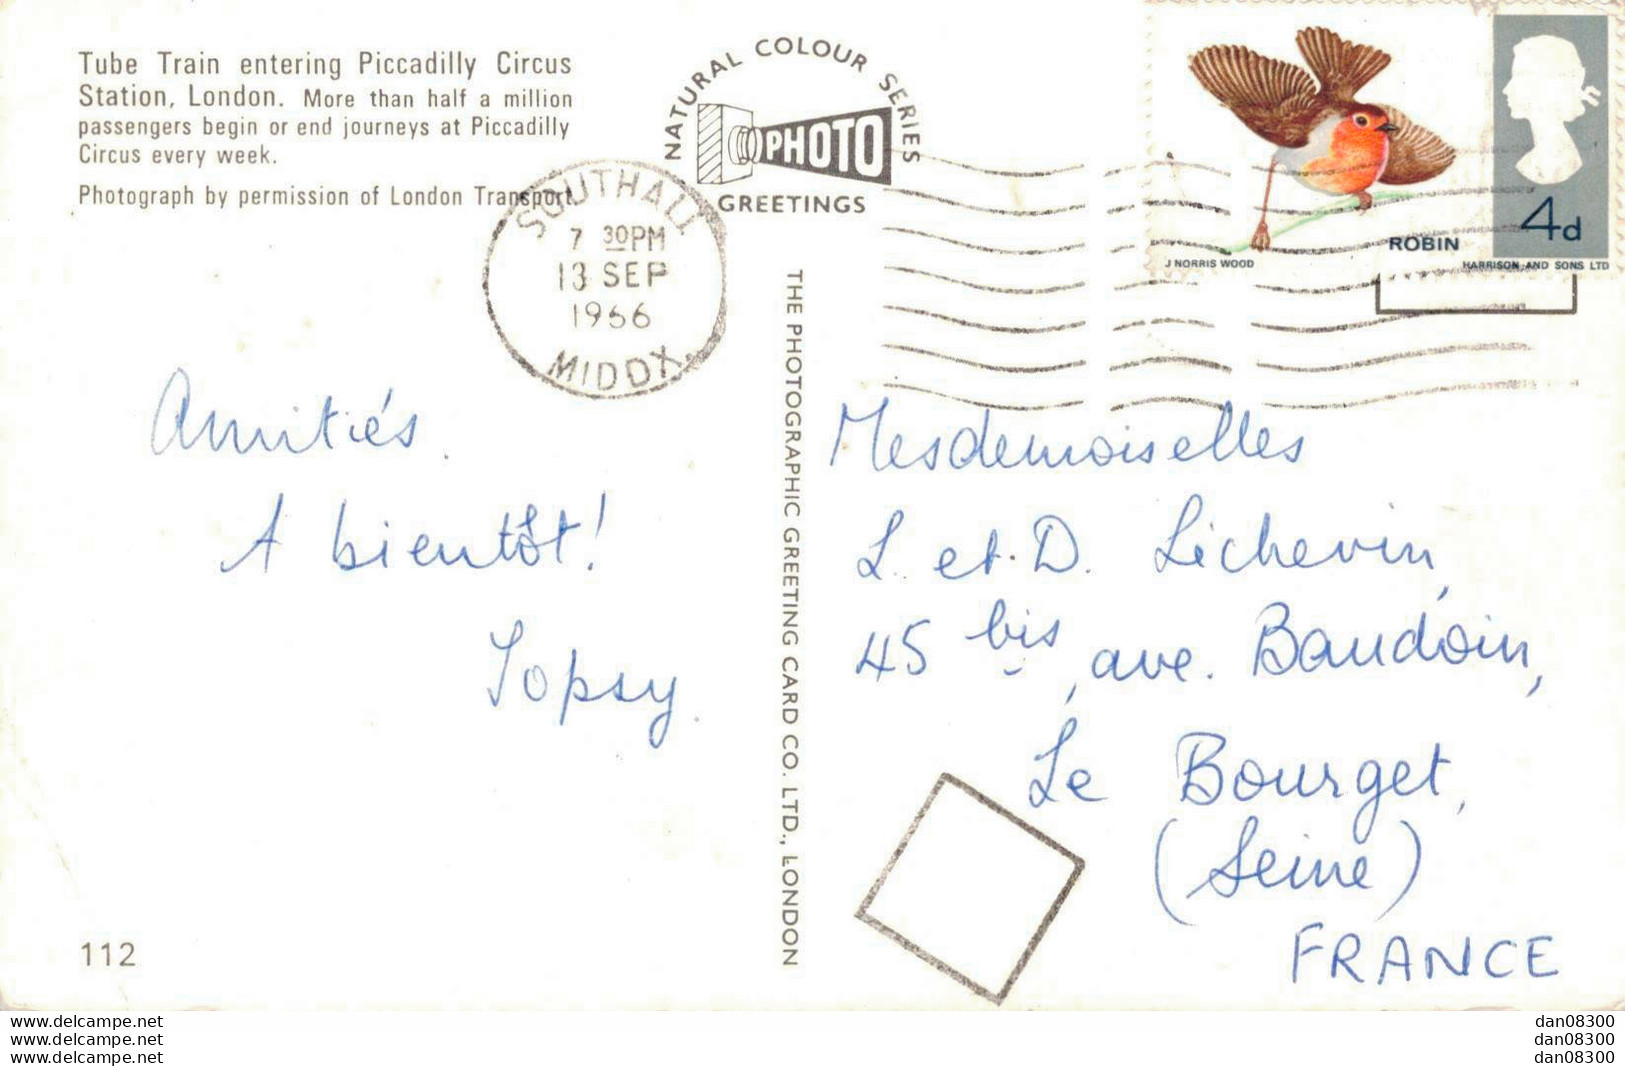 Tube Train entering Piccadilly Circus
Station, London. More than half a million
passengers begin or end journeys at Piccadilly
Circus every week.
Photograph by permission of London Transport.
NATURAL COLOUR SERIES
PHOTO
GREETINGS
SOUTHALL
7 30PM
13 SEP
1966
MIDDX.
ROBIN
4d
J NORRIS WOOD
HARRISON AND SONS LTD
THE PHOTOGRAPHIC GREETING CARD CO. LTD., LONDON
Amitiés.
A bientôt!
Topsy.
Mesdemoiselles
L. et D. Lichevin,
45 bis, ave. Baudoin,
Le Bourget,
(Seine)
FRANCE
112
www.delcampe.net
www.delcampe.net
www.delcampe.net
dan08300
dan08300
dan08300